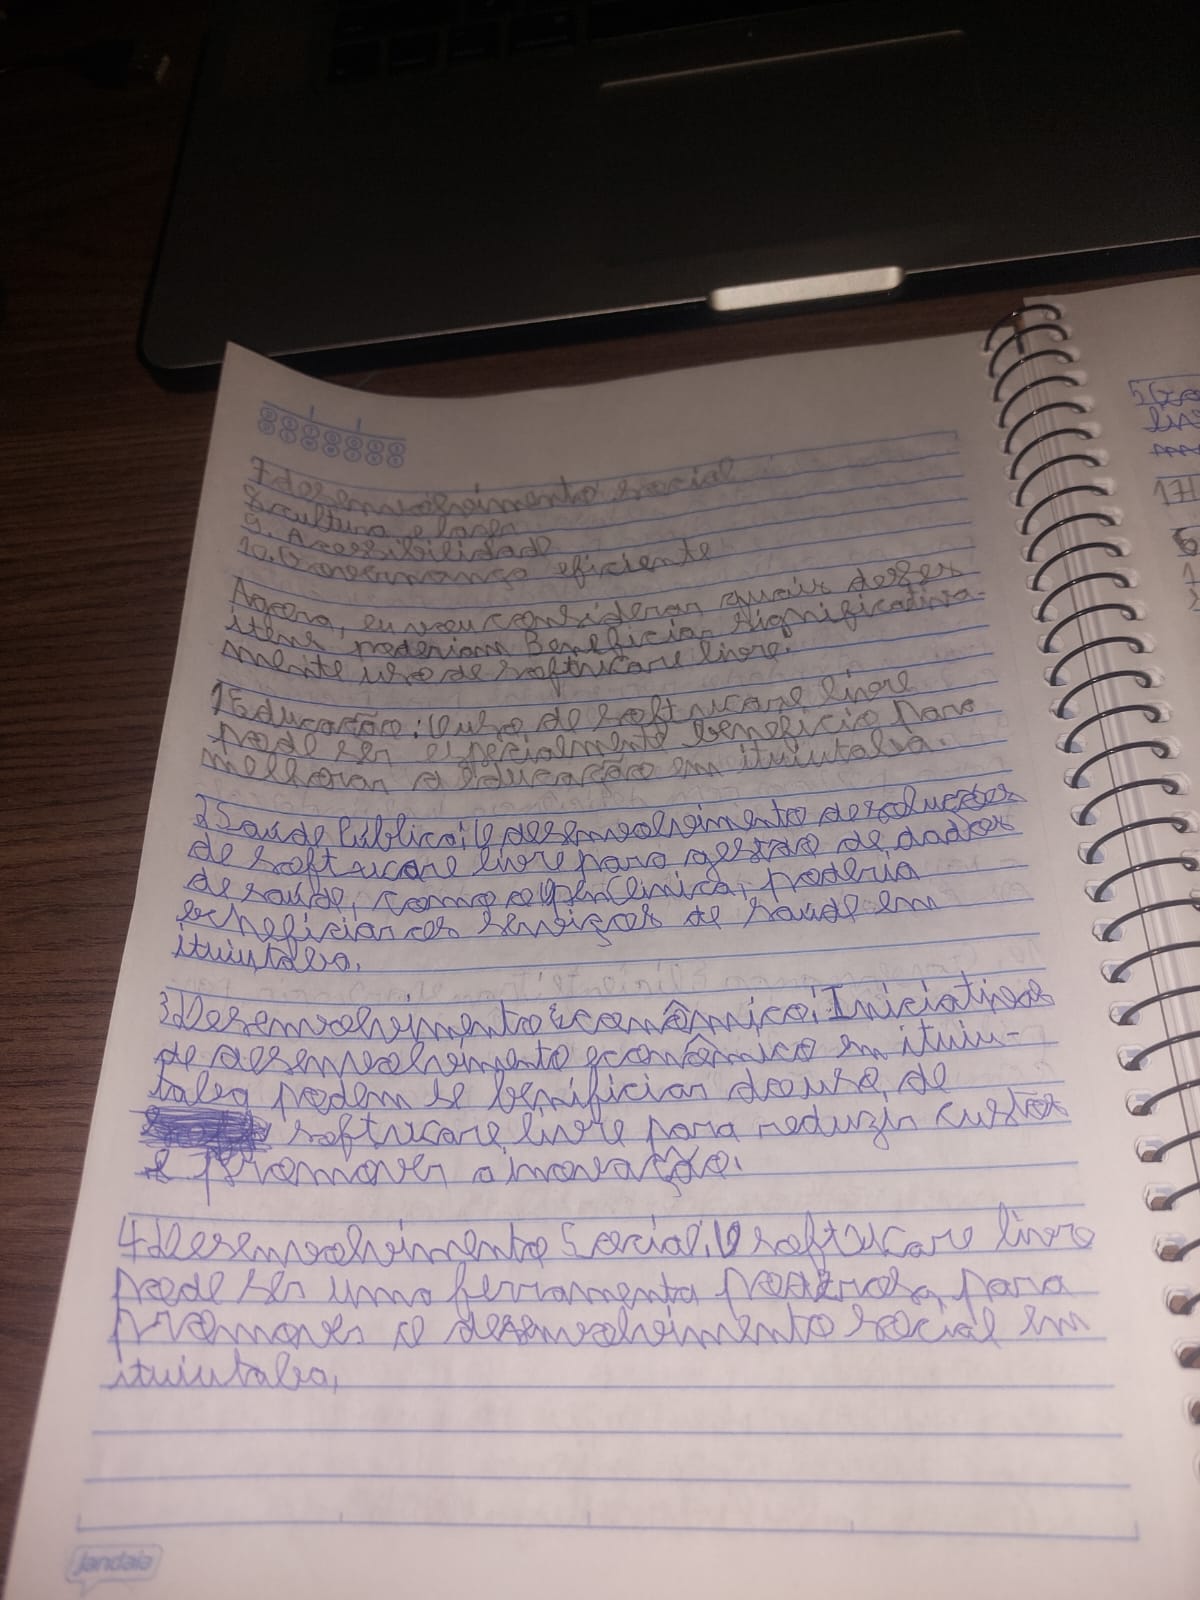 7 desenvolvimento social
8 cultura e lazer
9. Acessibilidade
10. Governança eficiente
Agora, eu vou considerar quais desses
itens poderiam Beneficiar significativa-
mente uso de software livre.
1 Educação: O uso de software livre
pode ser especialmente benefício para
melhorar a educação em ituiutaba.
2 Saúde Pública: O desenvolvimento de soluções
de software livre para gestão de dados
de saúde, como o OpenClinica, poderia
beneficiar os serviços de saúde em
ituiutaba.
3 Desenvolvimento Econômico: Iniciativas
de desenvolvimento econômico em ituiu-
taba podem se benificiar do uso de
software livre para reduzir custos
e promover a inovação.
4 Desenvolvimento Social: O software livre
pode ser uma ferramenta poderosa para
promover o desenvolvimento social em
ituiutaba.
jandaia
17